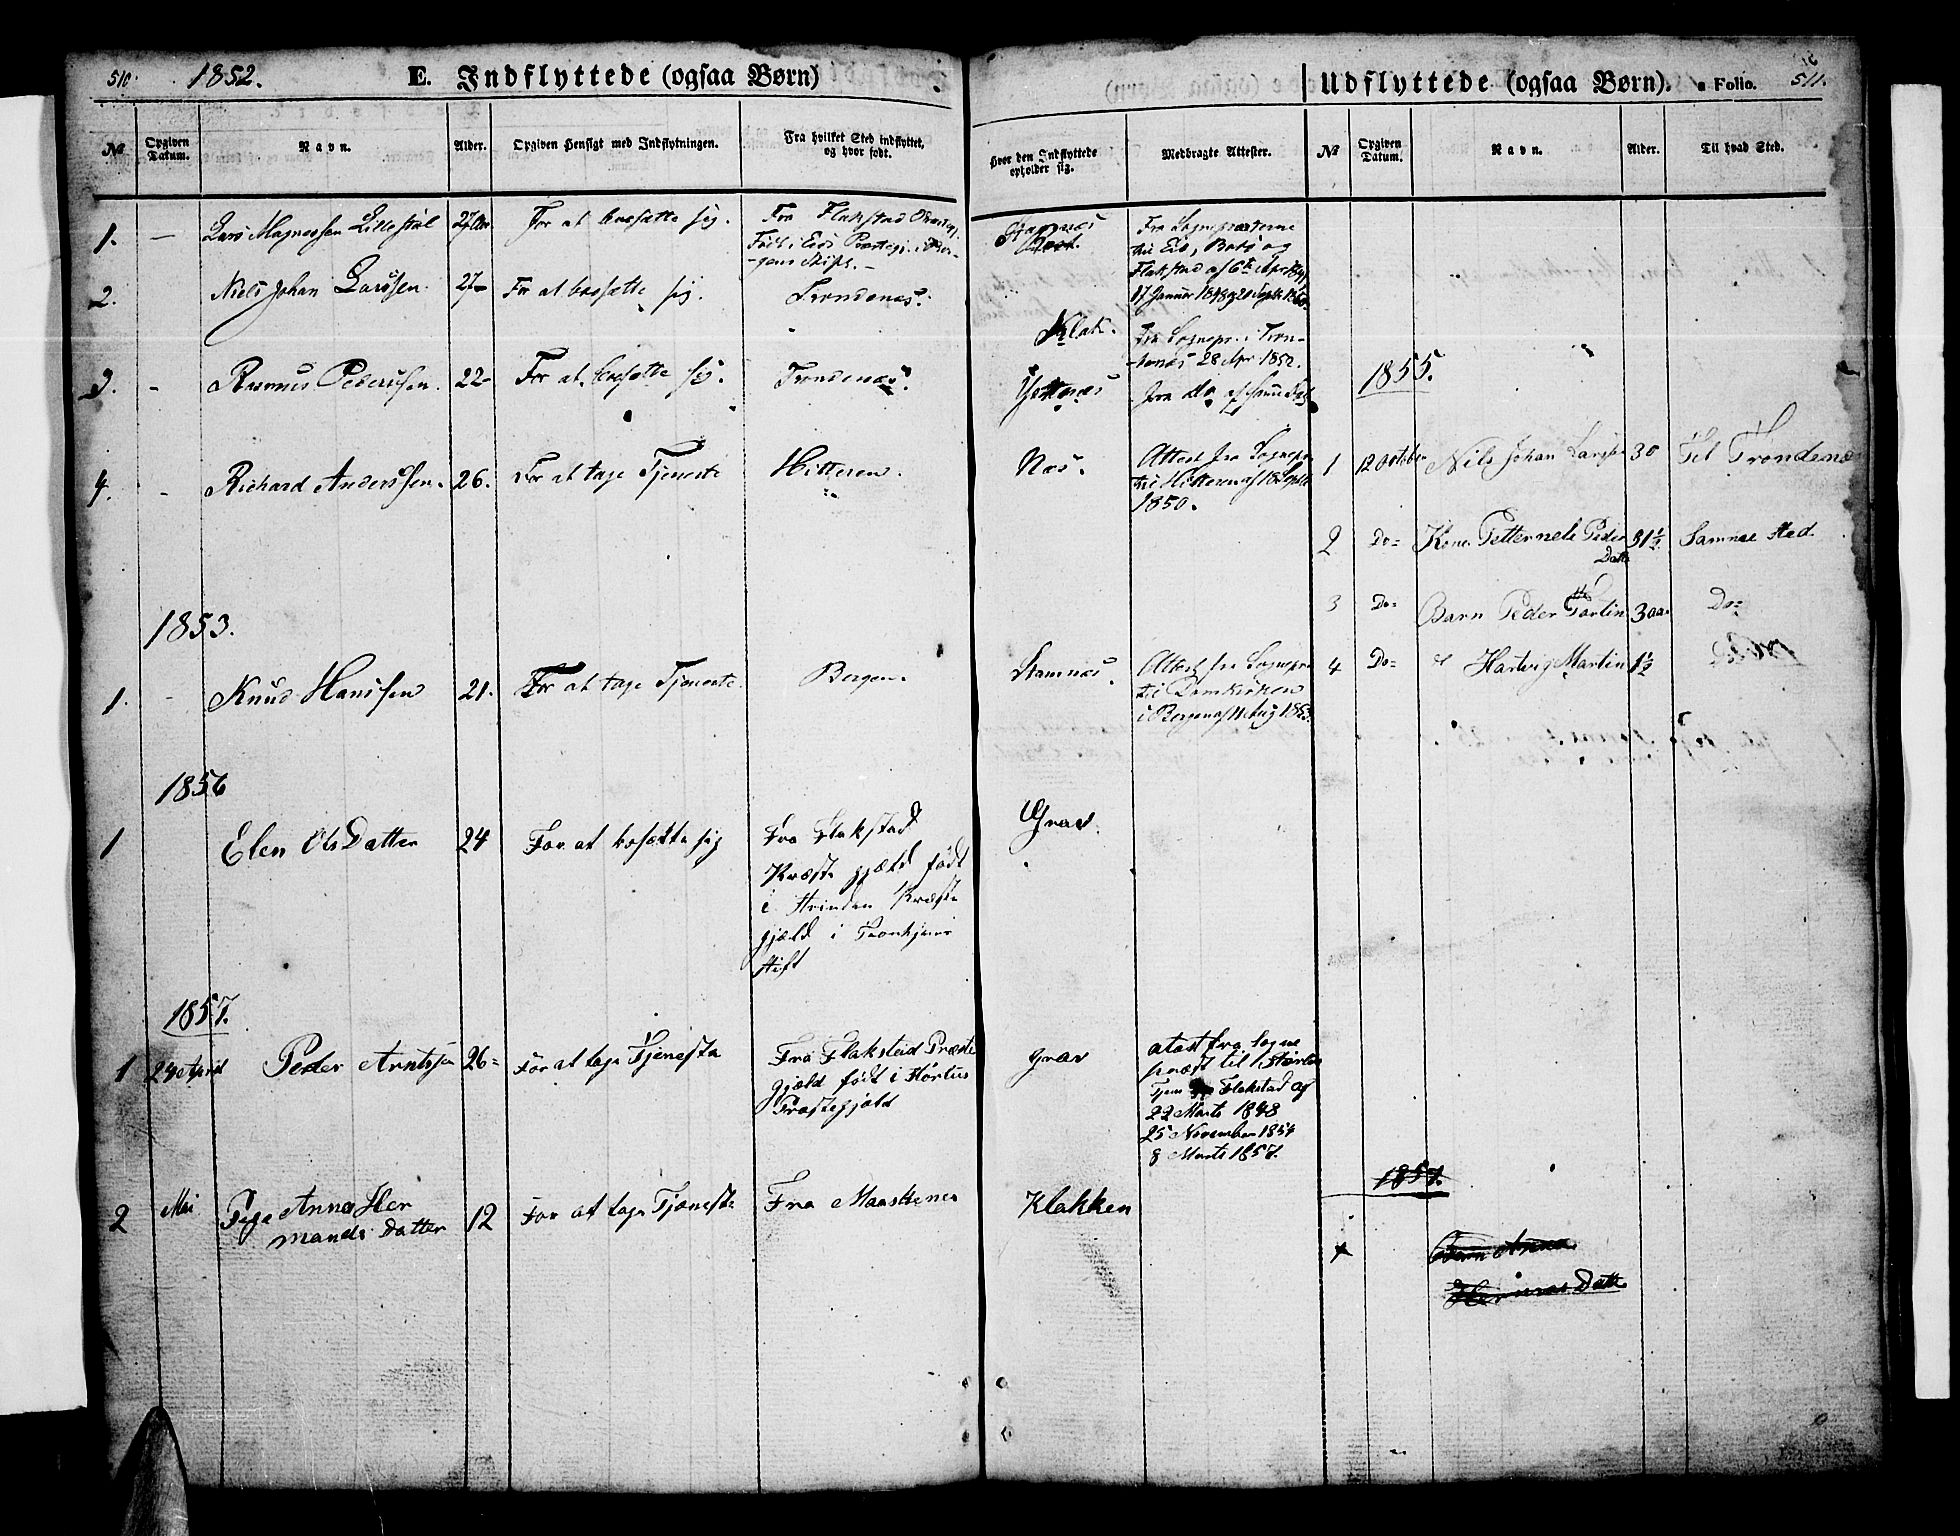 510. 1852. E. Indflyttede (ogsaa Børn)
№ Opgiven Datum. Navn. Alder. Opgiven Hensigt med Indflytningen. Fra hvilket Sted indflyttet, og hvor født.
1. — Lars Magnussen Lillestøl 27 For at bosætte sig. Fra Flakstad
Født i Eids Præstegj. i Ber-
-gens Stift. —
2. Niels Johan Larssen. 27 For at bosætte sig. Trondenæs.
3. - Rasmus Pederssen. 22- For at bosætte sig. Trondenæs.
4. - Richard Anderssen. 26. For at tage Tjeneste Hitteren.
1853.
1. - Knud Hanssen 21. For at tage Tjeneste. Bergen.
1856
1 Elen OlsDatter 24 For at bosætte sig Fra Flakstad
Præste gjæld født
i Strinden Præste
gjæld i Tronhjems
Stift
1857.
1 24 April Peder Arntsen 26= For at tage Tjenesta Fra Flakstad Præste
gjæld født i Hørlus
Præstegjæld
2 Mai Pige Anna Her
mands Datter 12 For at tage Tjeneste Fra Maaskenes
Udflyttede (ogsaa Børn). a Folio. 511.
Hvor den Indflyttede opholder sig. Medbragte Attester. № Opgiven Datum. Navn. Alder. Til hvad Sted.
Fra Sognepræsterne
til Eid, Borg og
Flakstad af 6te Apr
17 Januar 1848
Klak. Fra Sognepr. i Tron-
-denæs 28 Apr 1852.
fra do af samme
Næs. Attest fra Sognepr.
til Hitteren af 18 Septb
1850.
1855.
1 12 October Nils Johan Larss 30 Til Trondenæs
2 Do= Kone Petternele Peder
Datter 31½ Samme Sted
3 Do= Barn Peder 3 aar Do=
4 Do= Hartvig Martin 1½
Stamnæs. Attest fra Sognepr.
til Domkirken
i Bergen af 11 Aug 1853.
Grav.
Grav atest fra Sogne
præst til
Flakstad af
22 Marts 1848
25 November 1854
8 Marts 1857.
Klakken
1857.
Barn Anna
Datt